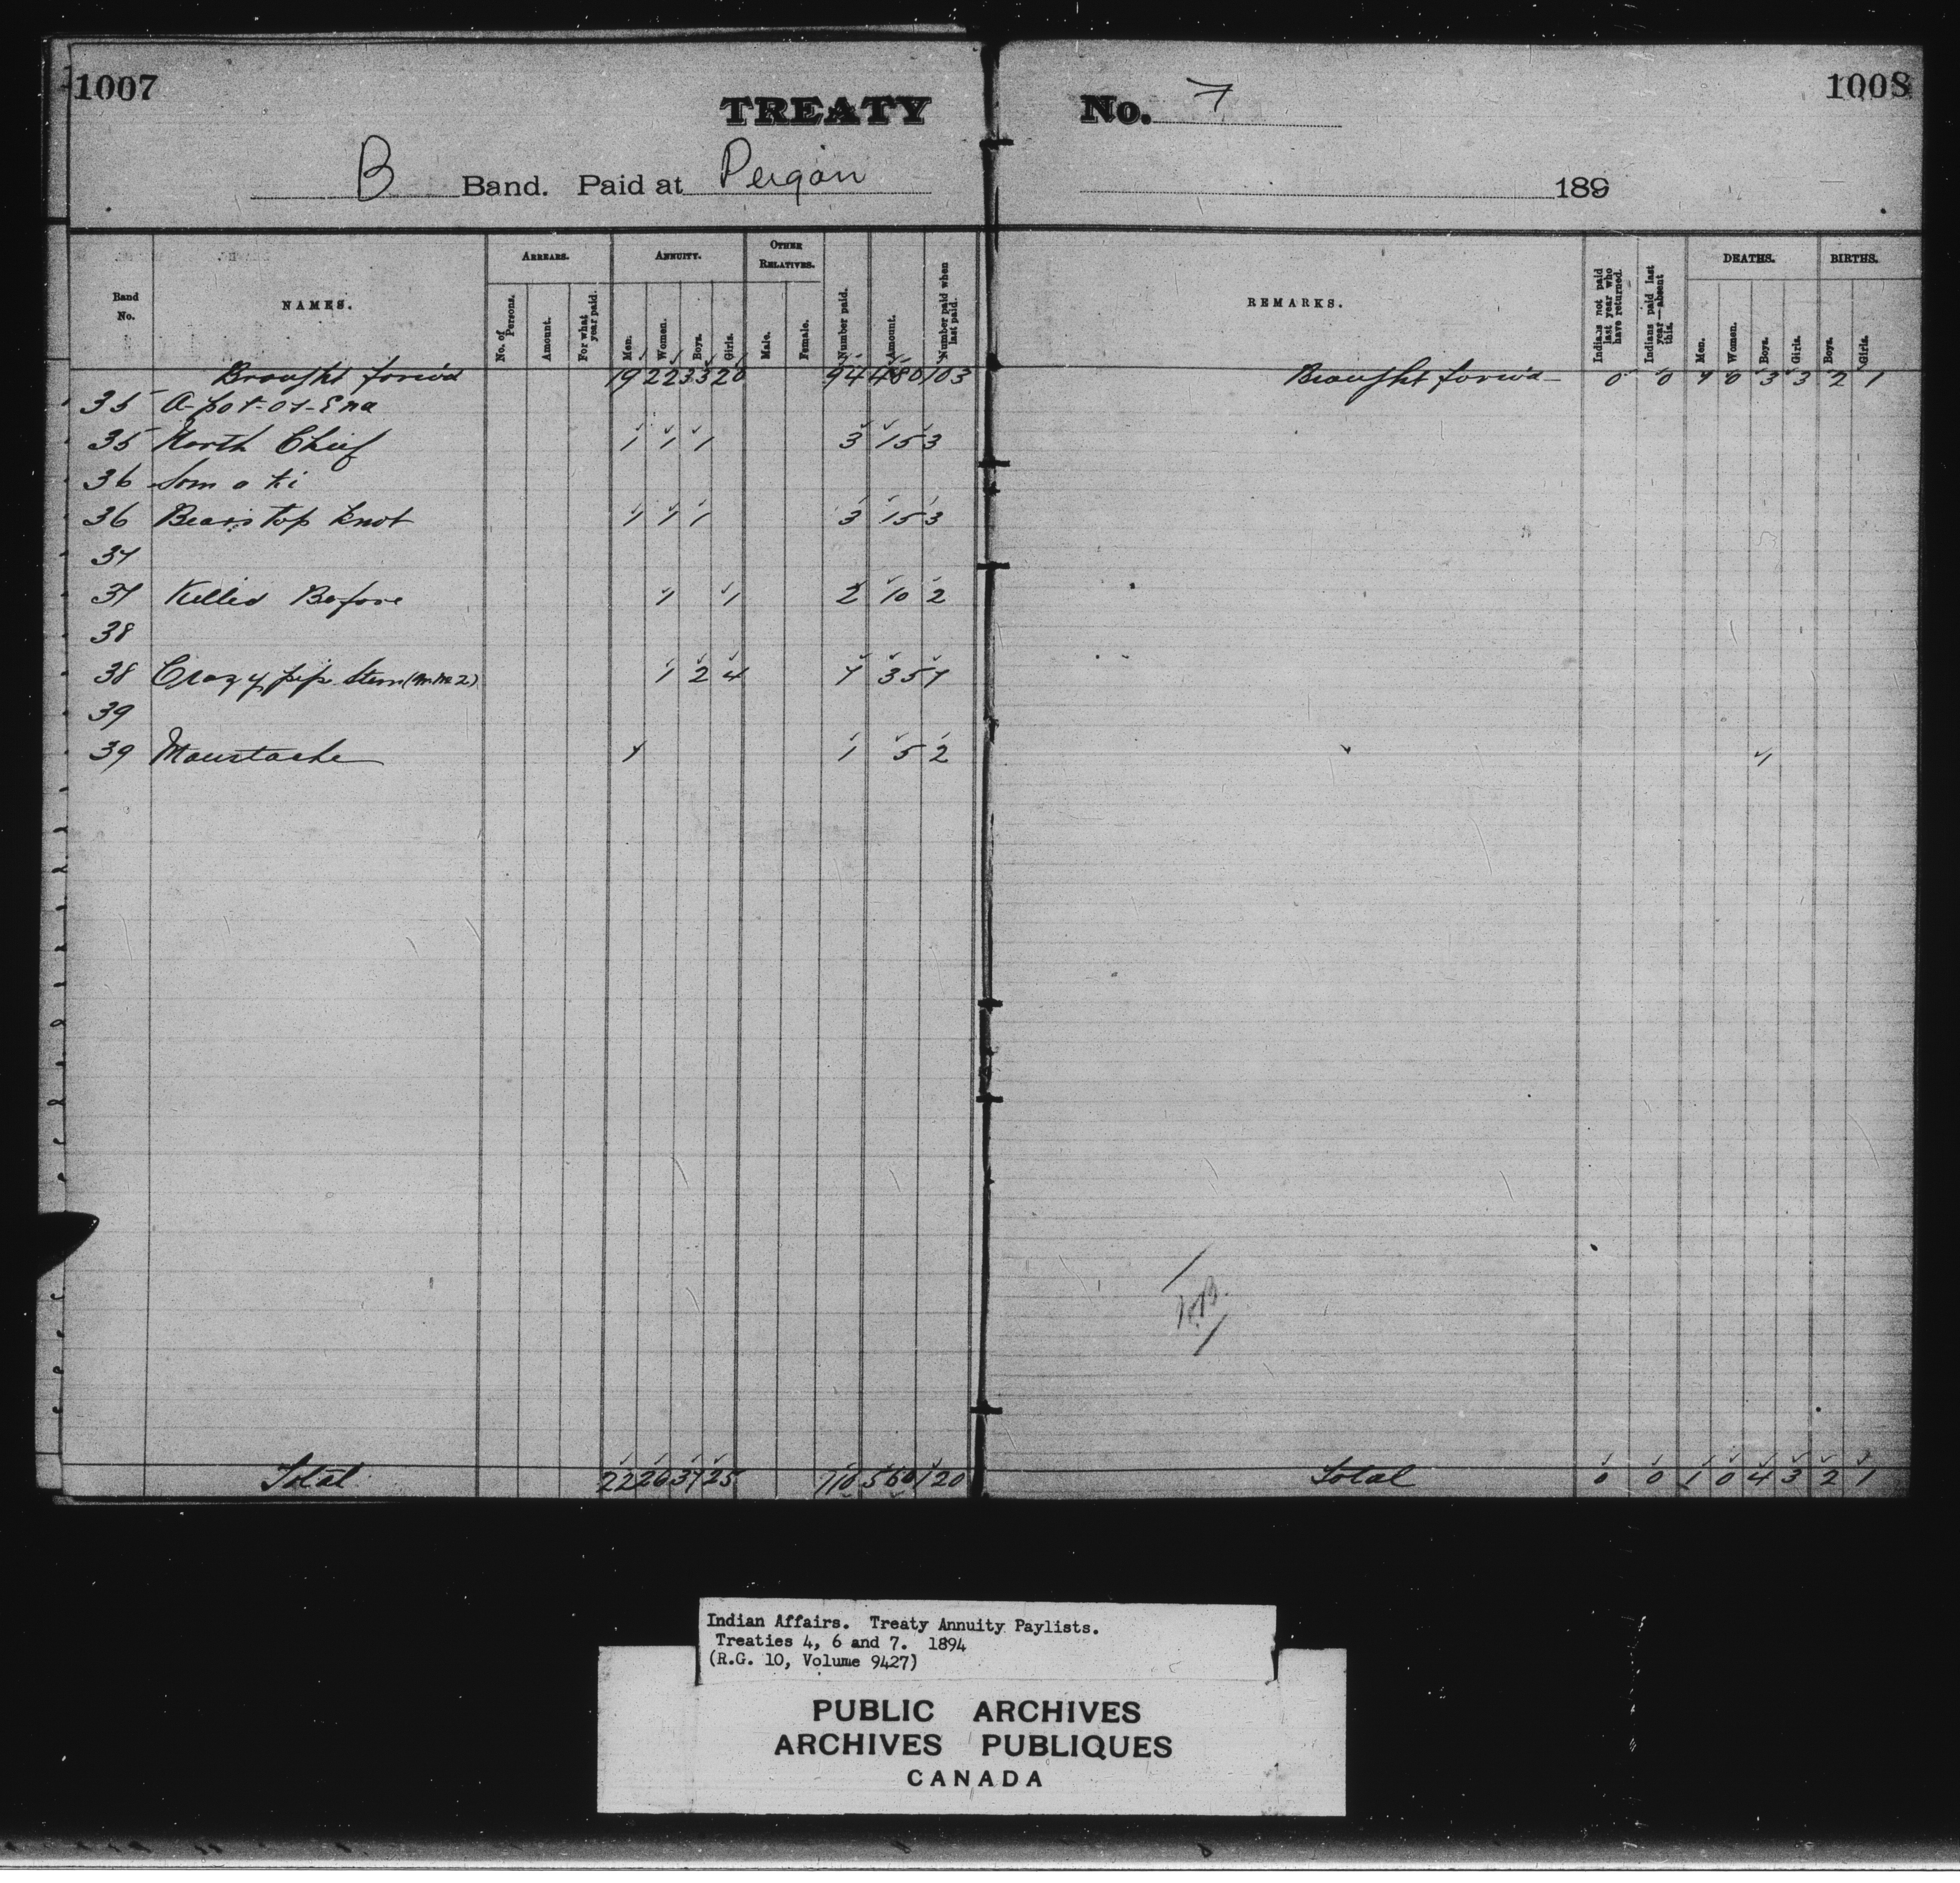 1007
1008
TREATY No. 7
B Band. Paid at Peigan 189
Band No. NAMES. ARREARS. No. of Persons. Amount. For what year paid. ANNUITY. Men. Women. Boys. Girls. OTHER RELATIVES. Male. Female. Number paid. Amount. Number paid when last paid. REMARKS. Indians not paid last year who have returned. Indians paid last year—absent this. DEATHS. Men. Women. Boys. Girls. BIRTHS. Boys. Girls.
Brought forwd 19 22 33 20 94 480 103 Brought forwd 0 0 1 0 3 3 2 1
35 A-pot-ot-Sna
35 North Chief 1 1 1 3 15 3
36 Som o ki
36 Bears top Knot 1 1 1 3 15 3
37
37 Killed Before 1 1 2 10 2
38
38 Crazy pipe Stem 1 2 4 7 35 7
39
39 Moustache 1 1 5 2 1
Total 22 26 37 25 110 560 120 Total 0 0 1 0 4 3 2 1
Indian Affairs. Treaty Annuity Paylists.
Treaties 4, 6 and 7. 1894
(R.G. 10, Volume 9427)
PUBLIC ARCHIVES
ARCHIVES PUBLIQUES
CANADA